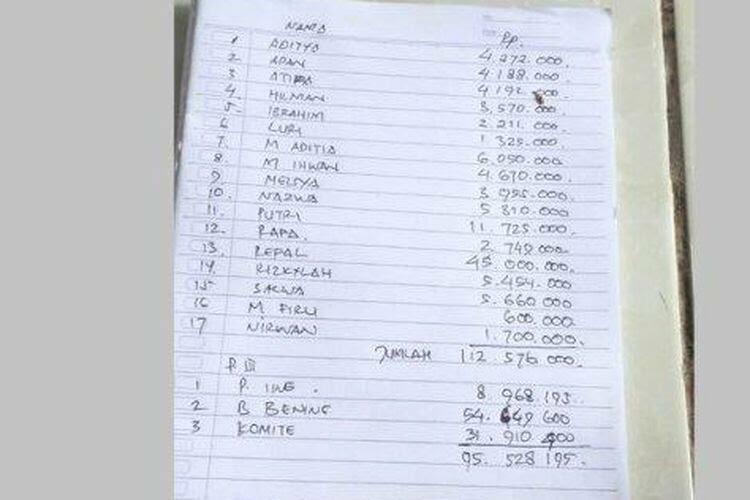 NAMA Rp.
1 ADITYA 4.272.000.
2. APAN 4.188.000.
3 ATIRA 4.192.000.
4 HILMAN 3,570.000.
5. IBRAHIM 2.211.000.
6 LURI 1.325.000.
7. M ADITIA 6.050.000
8. M IHWAN 4.670.000.
9. MELSYA
10. NAZWA 5 310.000
11. PUTRI 11.725.000
12. RAPA. 2.749.000
13. REPAL 45.000.000.
14 RIZKYLAH 5.454.000
15 SALWA 5.660.000
16 M FIRLI 600.000
17 NIRWAN 1.700.000.
JUMLAH 112 576 000.
P. III
1 P. IKE . 8 968 195
2 B BENING 54. 649 600
3 KOMITE 31. 910 400
95. 528 195.